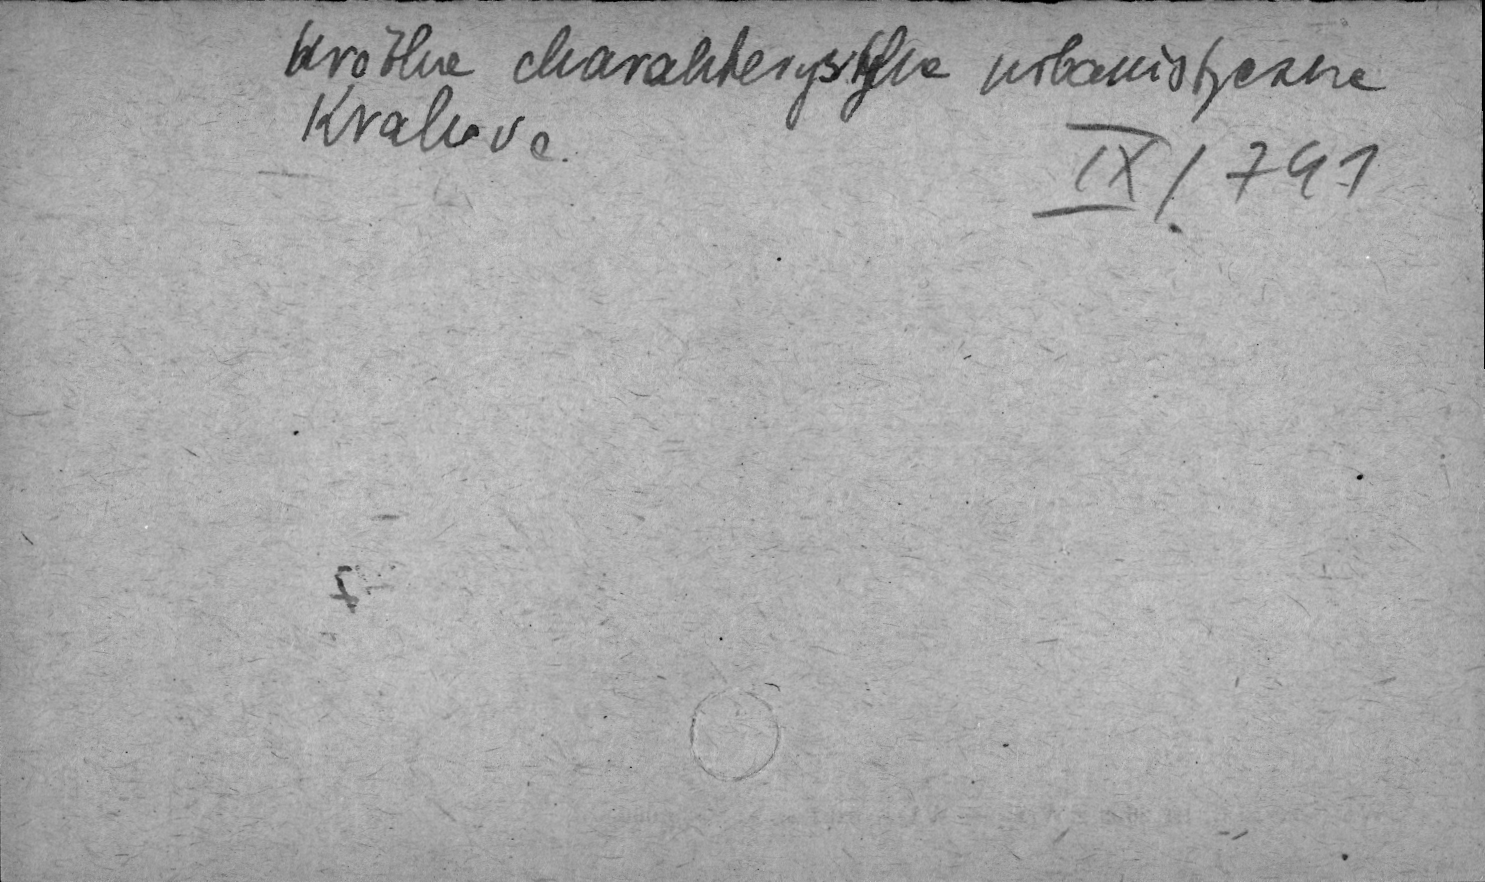 Krótka charakterystyka urbanistyczna
Krakowa.
IX/791
7